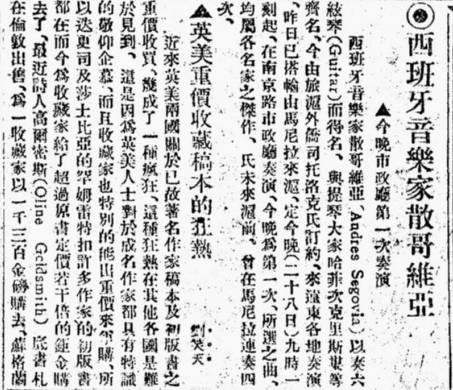 ◎西班牙音樂家散哥維亞
▲今晚市政廳第一次奏演
西班牙音樂家散哥維亞 Andres Segovia, 以奏六
絃琴(Guitar)而得名、與提琴大家哈菲次克里斯婁等
齊名、今由旅滬外僑司托洛克氏訂約、來遠東各地奏演
、昨日已搭輪由馬尼拉來滬、定今晚(二十八日)九時一
刻起、在南京路市政廳奏演、今晚爲第一次、所選之曲、
均屬各名家之傑作、氏未來滬前、曾在馬尼拉連奏四
次、
英美重價收藏稿本的狂熱
近來英美兩國關於已故著名作家稿本及初版書之
重價收買、幾成了一種瘋狂、這種狂熱在其他各國是難
於見到、這是因爲英美人士對於成名作家都具有特識
的敬仰企慕、而且收藏家也特別的能出重價來爭購、所
以迭更司及莎士比亞的罕姆雷特扣許多作家的初版書
都在而今爲收藏家給了超過原書定價若干倍的鉅金購
去了、最近詩人高爾密斯(Oline Goldsmith)底書札
在倫敦出售、爲一收藏家以一千三百金磅購去、蘇格蘭